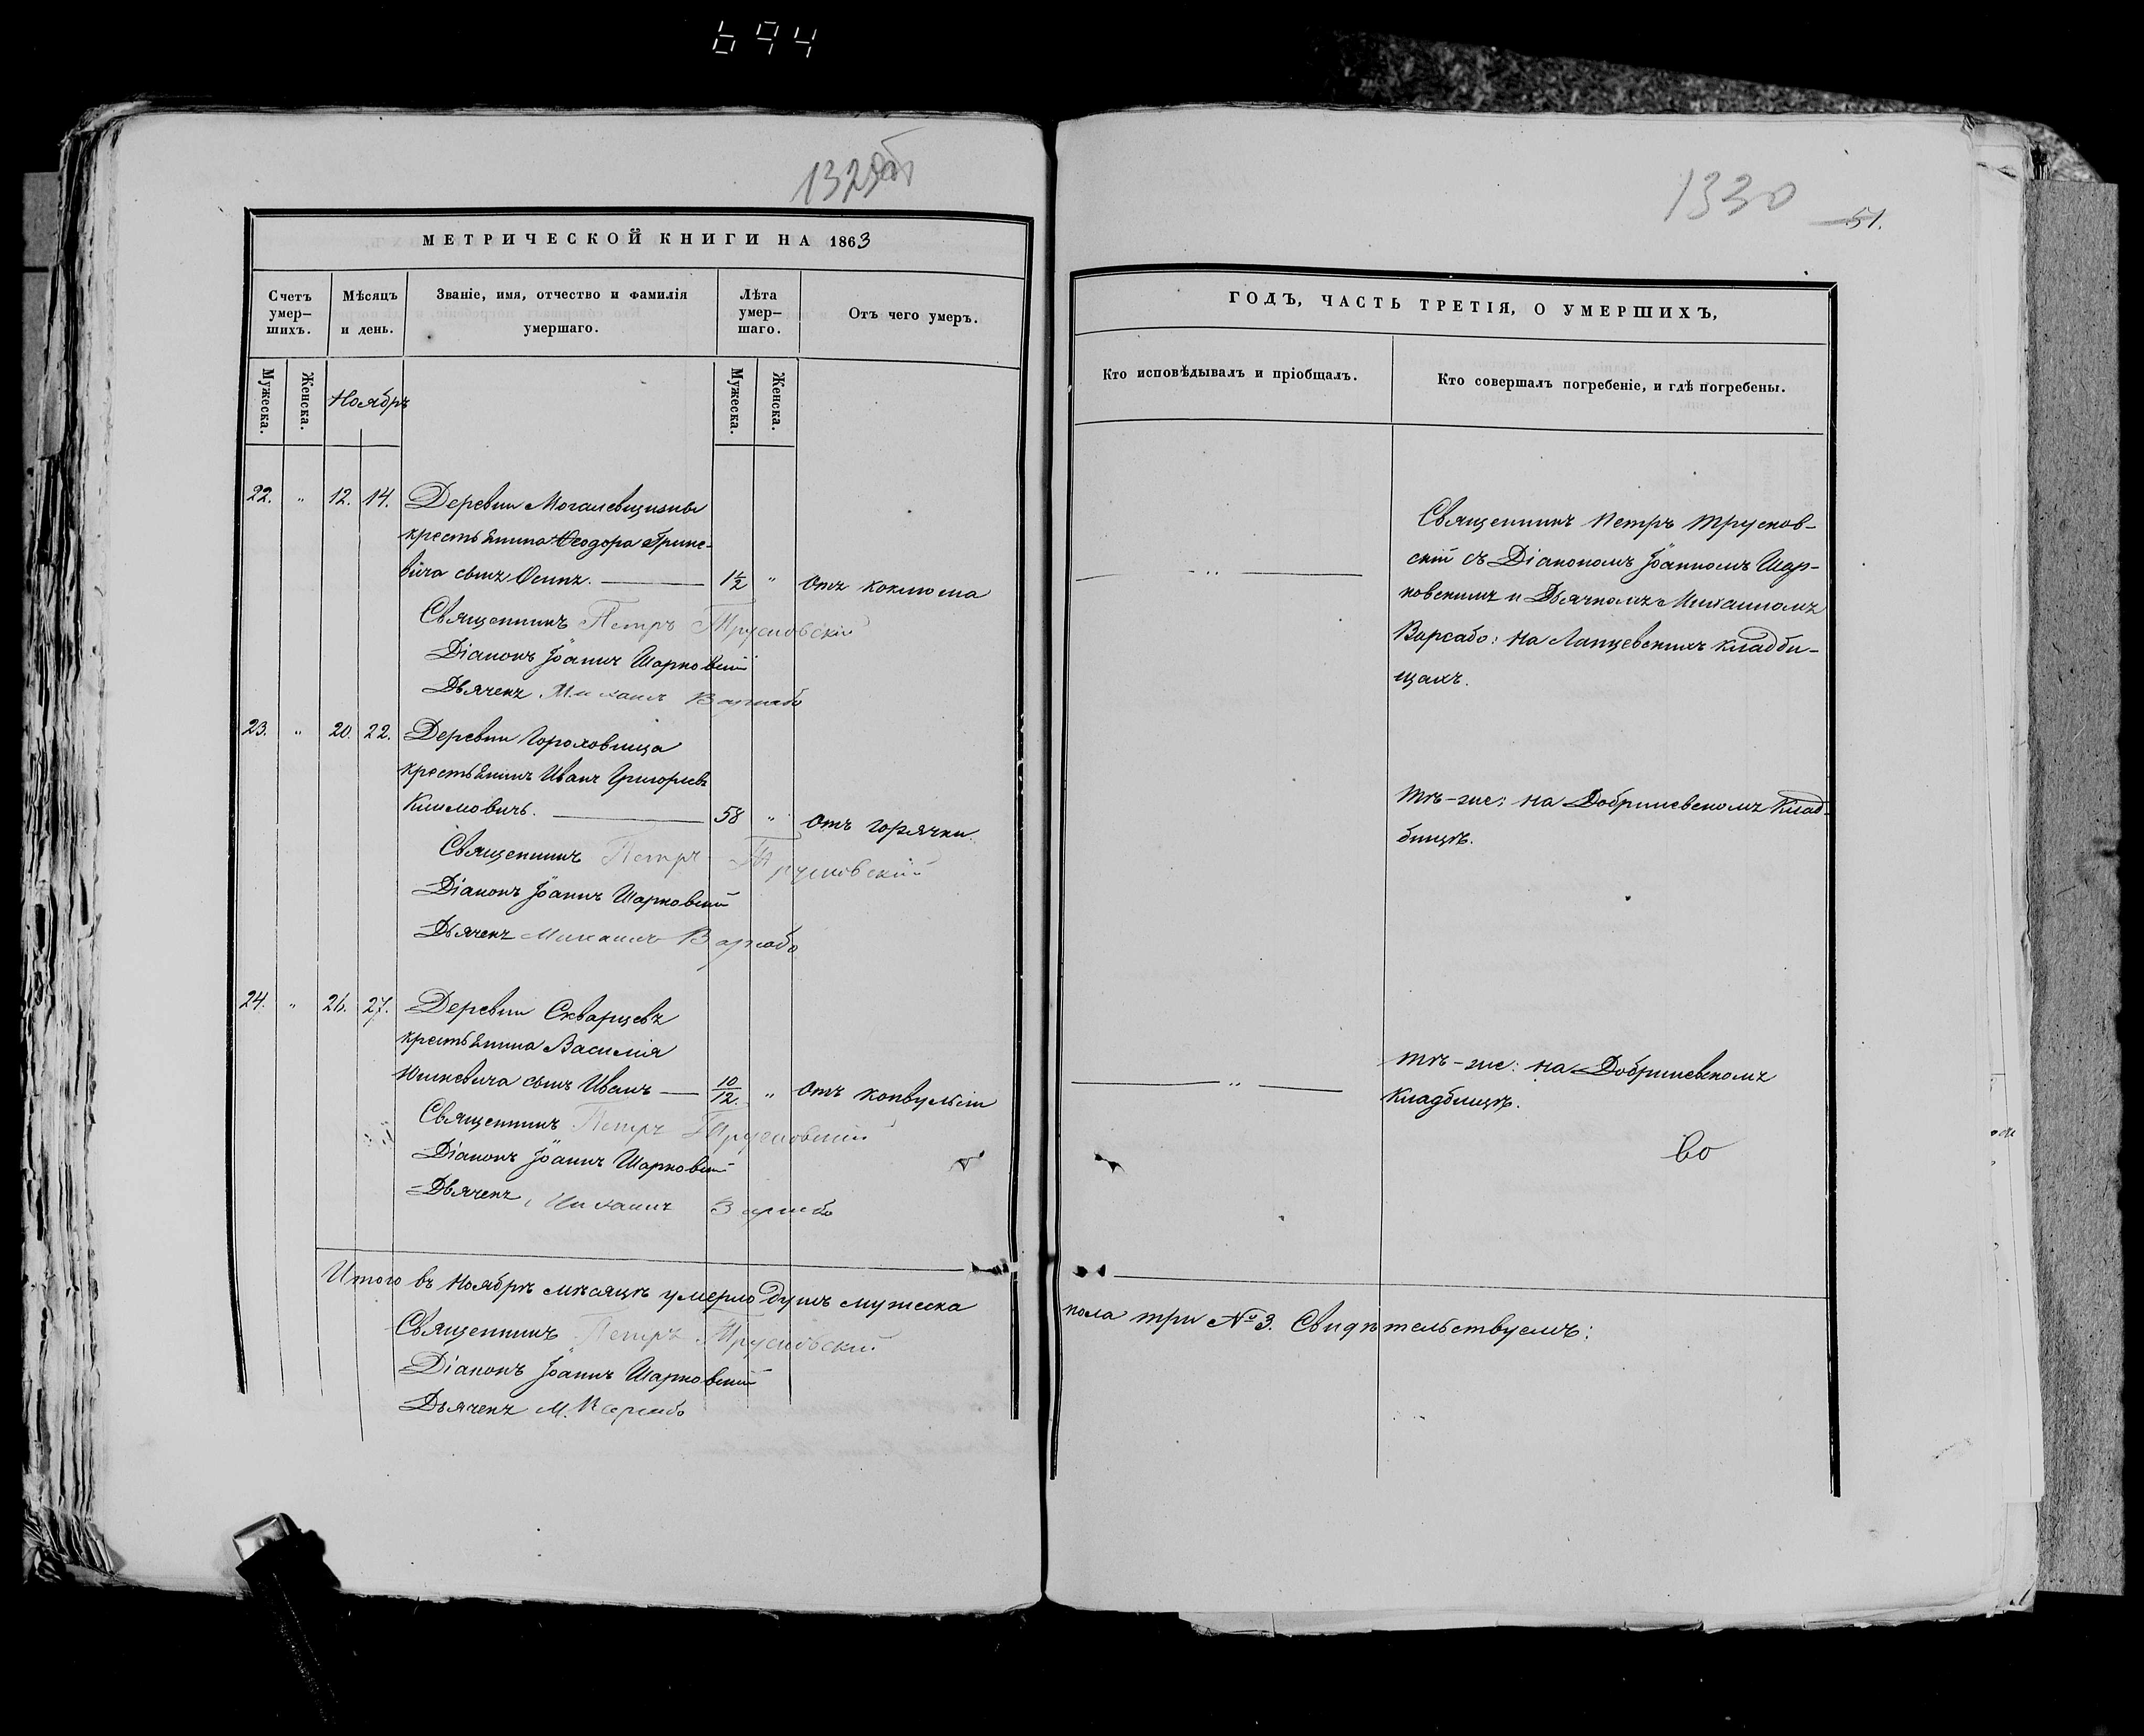 694
1329об
МЕТРИЧЕСКОЙ КНИГИ НА 1863
Счетъ умер-шихъ.
Мѣсяцъ и день.
Званіе, имя, отчество и фамилія умершаго.
Лѣта умер-шаго.
Отъ чего умеръ.
Мужеска.
Женска.
Ноябрь
Мужеска.
Женска.
22. " 12. 14. Деревни Могалевщизны
крестьянина Ѳеодора Грине-
вича сынъ Осипъ. 1½ " Отъ коклюша
Священникъ Петръ Трусковскій
Діаконъ Іоаннъ Шарковскій
Дьячекъ Михаилъ Варсабо
23. " 20. 22. Деревни Гороховища
крестьянинъ Иванъ Григорьевъ
Климовичъ. 58 " Отъ горячки.
Священникъ Петръ Трусковскій
Діаконъ Іоаннъ Шарковскій
Дьячекъ Михаилъ Варсабо
24. " 26. 27. Деревни Скварцевъ
крестьянина Василія
Юшкевича сынъ Иванъ 10/12. " Отъ конвульсіи
Священникъ Петръ Трусковскій
Діаконъ Іоаннъ Шарковскій
Дьячекъ Михаилъ Варсабо
Итого въ Ноябрѣ мѣсяцѣ умерло душъ мужеска
Священникъ Петръ Трусковскій
Діаконъ Іоаннъ Шарковскій
Дьячекъ М. Варсабо
1330
51.
ГОДЪ, ЧАСТЬ ТРЕТІЯ, О УМЕРШИХЪ,
Кто исповѣдывалъ и пріобщалъ.
Кто совершалъ погребеніе, и гдѣ погребены.
Священникъ Петръ Трусков-
скій съ Діакономъ Іоанномъ Шар-
ковскимъ и Дьячкомъ Михаиломъ
Варсабо: на Лапцевскихъ кладби-
щахъ.
Тѣ-же: на Добриневскомъ клад-
бищѣ.
Тѣ-же: на Добриневскомъ
кладбищѣ.
во
пола три №3. Свидѣтельствуемъ: